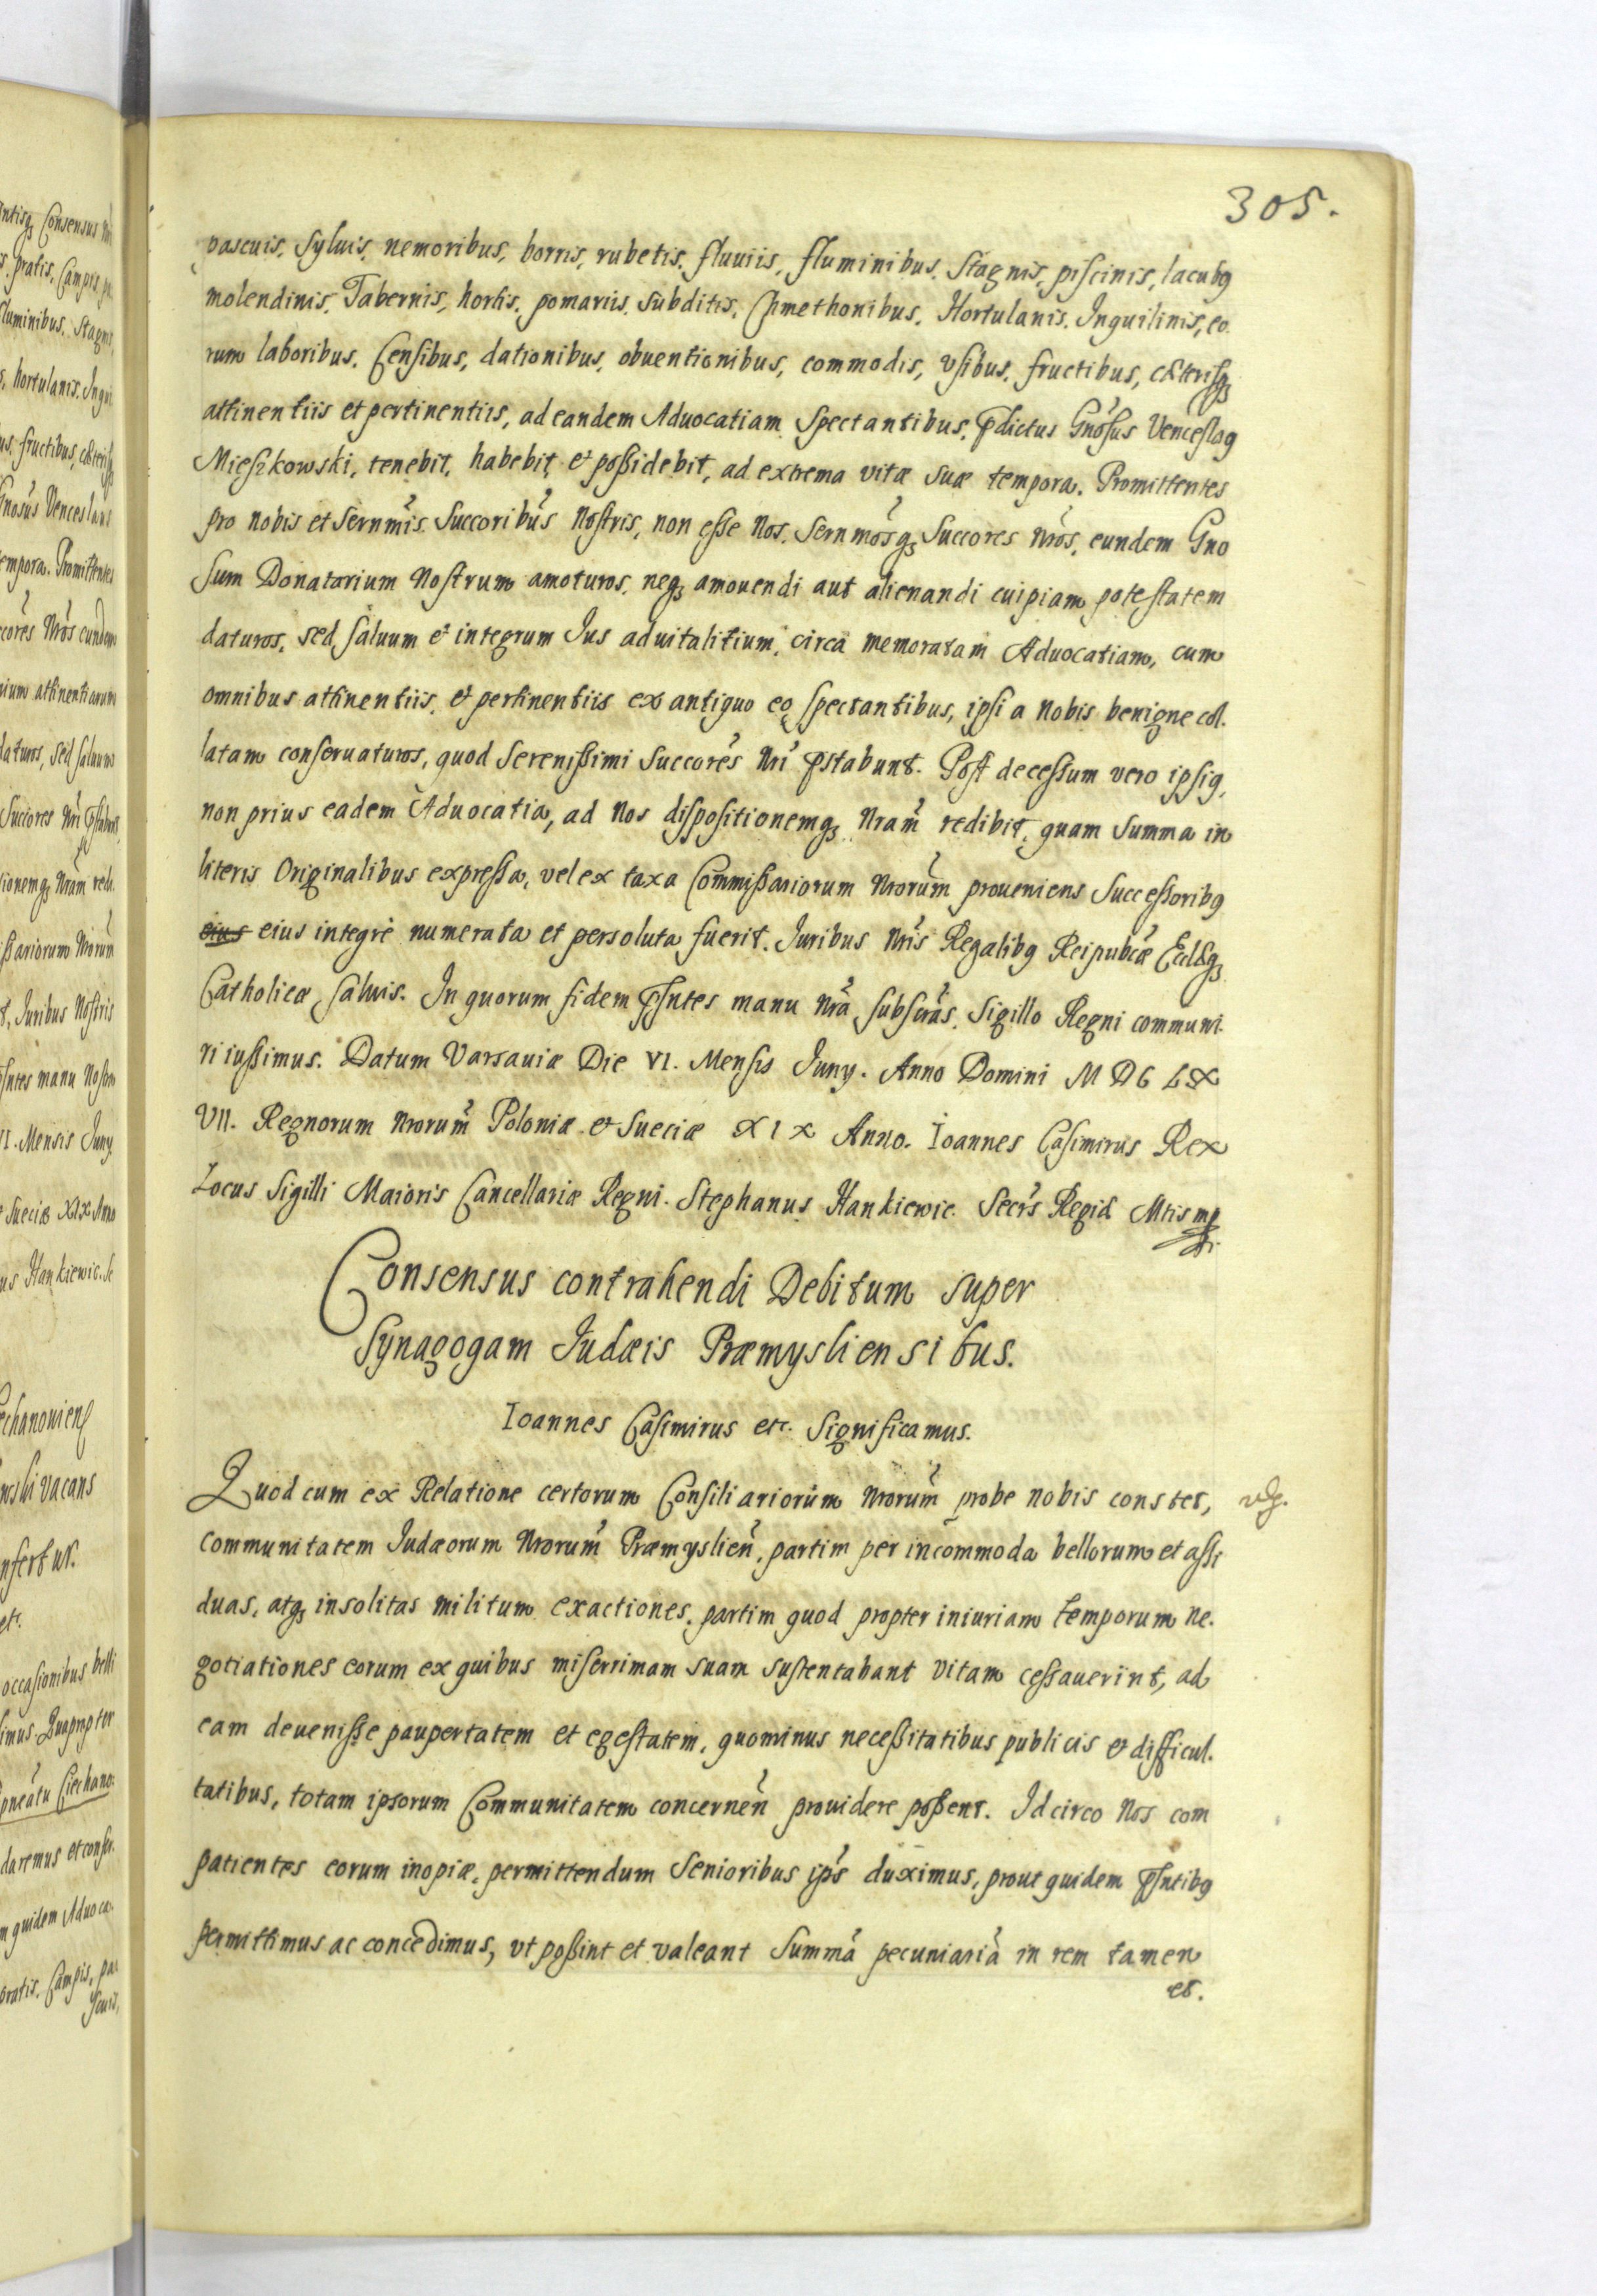 305.
pascuis, Syluis, nemoribus, borris, rubetis, fluuiis, fluminibus, Stagnis, piscinis, lacubꝰ
molendinis, Tabernis, hortis, pomariis, Subditis, Cmethonibus, Hortulanis, Inquilinis, eo-
rum laboribus, Censibus, dationibus, obuentionibus, commodis, Vsibus, fructibus, cæterisqꝫ
attinentiis et pertinentiis, ad eandem Aduocatiam Spectantibus, ꝓdictus Gnosus Venceslaꝰ
Mieszkowski, tenebit, habebit et possidebit, ad extrema vitæ suæ tempora. Promittentes
pro nobis et Sernmis Succoribus Nostris, non esse Nos, Sernmosqꝫ Succores Nros, eundem Gno
sum Donatarium Nostrum amoturos, neqꝫ amouendi aut alienandi cuipiam potestatem
daturos, sed saluum et integrum Ius aduitalitium, circa memoratam Aduocatiam, cum
omnibus attinentiis, et pertinentiis ex antiquo eo spectantibus, ipsi a Nobis benigne col-
latam conseruaturos, quod Serenissimi Succores Nri ꝓstabunt. Post decessum vero ipsiꝰ,
non prius eadem Aduocatia, ad Nos dispositionemqꝫ Nram redibit, quam Summa in
literis Originalibus expressa, vel ex taxa Commissariorum Nrorum proueniens Successoribꝰ
eius eius integrè numerata et persoluta fuerit. Iuribus Nris Regalibꝰ Reipubcæ Eccl&qꝫ
Catholicæ saluis. In quorum fidem ꝓsntes manu Nra subscras, Sigillo Regni communi-
ri iussimus. Datum Varsauiæ Die VI. Mensis Juny. Anno Domini M DC LX
VII. Regnorum Nrorum Poloniæ et Sueciæ XIX Anno. Ioannes Casimirus Rex
Locus Sigilli Maioris Cancellariæ Regni. Stephanus Hankiewic. Secrs Regiæ Mtis mp
Consensus contrahendi Debitum super
Synagogam Iudæis Præmysliensibus.
Ioannes Casimirus etc. Significamus.
Quod cum ex Relatione certorum Consiliariorum Nrorum probe nobis constet,
Communitatem Iudæorum Nrorum Præmyslien, partim per incommoda bellorum et assi
duas, atqꝫ insolitas militum exactiones, partim quod propter iniuriam temporum ne-
gotiationes eorum ex quibus miserrimam suam sustentabant vitam cessauerint, ad
eam deuenisse paupertatem et egestatem, quominus necessitatibus publicis et difficul-
tatibus, totam ipsorum Communitatem concernen prouidere possent. Idcirco Nos com
patientes eorum inopiæ, permittendum Senioribus ips duximus, prout quidem ꝓsntibꝰ
permittimus ac concedimus, vt possint et valeant Summa pecuniaria in rem tamen
et.